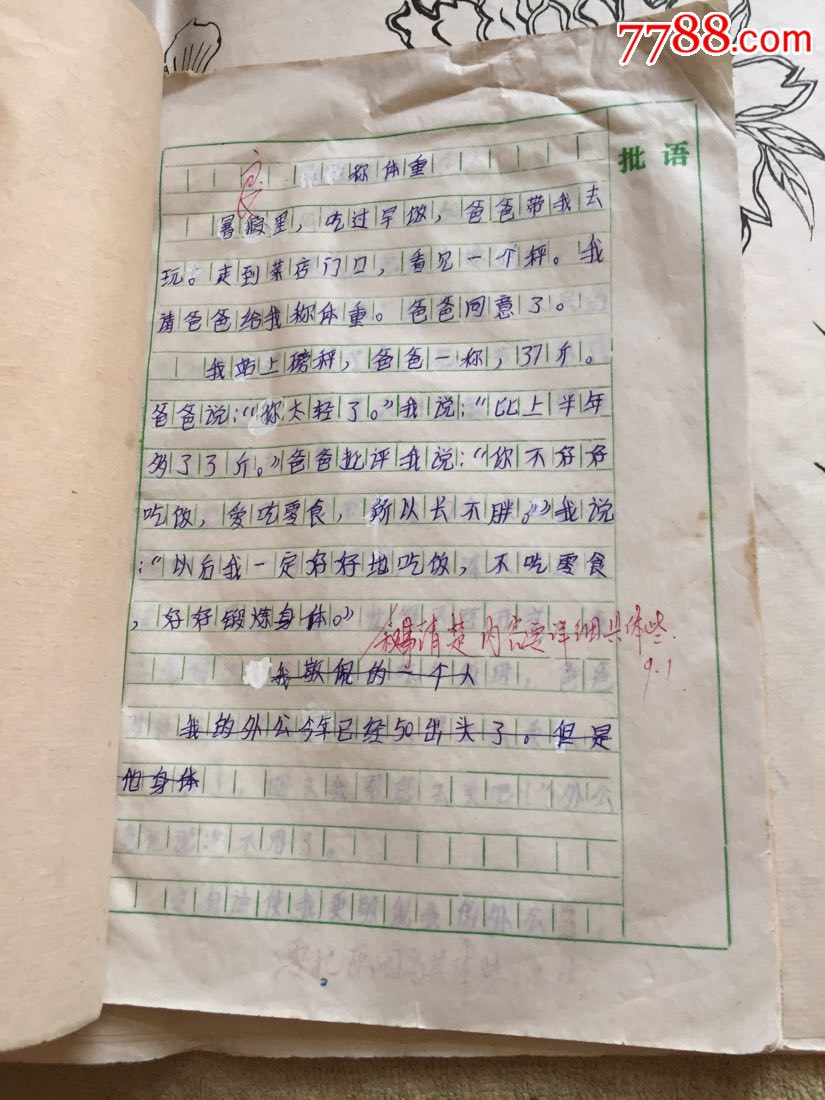 7788.com
批语
良
称体重
暑假里，吃过早饭，爸爸带我去
玩。走到菜店门口，看见一个秤。我
请爸爸给我称体重。爸爸同意了。
我站上磅秤，爸爸一称，37斤。
爸爸说：“你太轻了。”我说：“比上半年
多了3斤。”爸爸批评我说：“你不好好
吃饭，爱吃零食，所以长不胖。”我说
：“以后我一定好好地吃饭，不吃零食
，好好锻炼身体。”
清楚 内容要详细具体些.
9.1
我敬佩的一个人
我的外公今年已经50出头了。但是
他身体